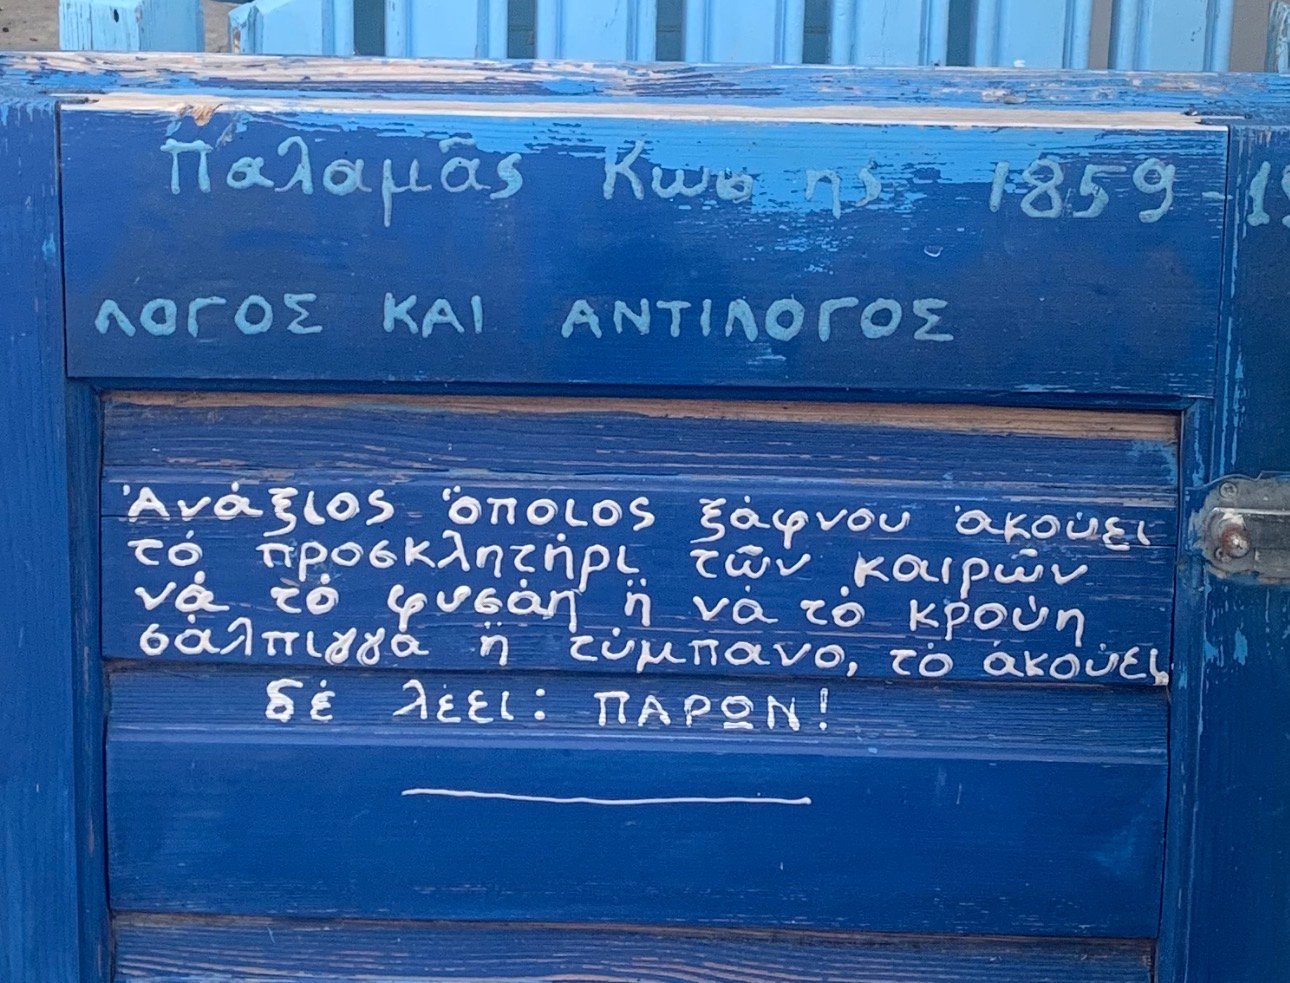 Παλαμᾶς Κωσ ης 1859-19
ΛΟΓΟΣ ΚΑΙ ΑΝΤΙΛΟΓΟΣ
Ἀνάξιος ὅποιος ξάφνου ἀκούει
τό προσκλητήρι τῶν καιρῶν
νά τό φυσάη ἤ νά τό κρούη
σάλπιγγα ἤ τύμπανο, τό ἀκούει
δέ λέει: ΠΑΡΩΝ!